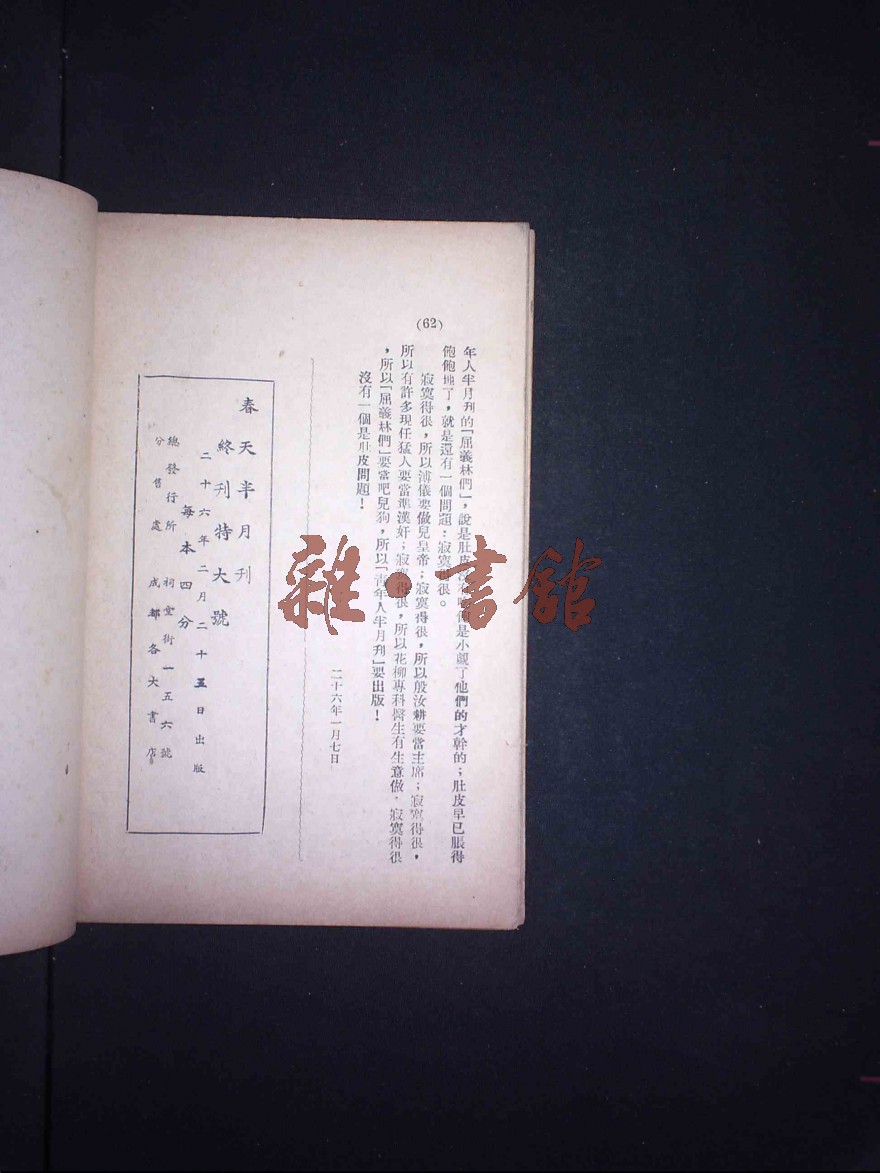 (62)
年人半月刊的「屈義林們」，說是肚皮是小覷了他們的才幹的；肚皮早已脹得
飽飽地了，就是還有一個問題：寂寞得很。
寂寞得很，所以溥儀要做兒皇帝；寂寞得很，所以殷汝耕要當主席；寂寞得很，
所以有許多現任猛人要當準漢奸；寂寞得很，所以花柳專科醫生有生意做，寂寞得很
，所以「屈義林們」要當吧兒狗，所以「青年人半月刊」要出版！
沒有一個是肚皮問題！
二十六年一月七日
春天半月刊
終刊特大號
二十六年二月二十五日出版
每本四分
總發行所 祠堂街一五六號
分售處 成都各大書店
雜·書館